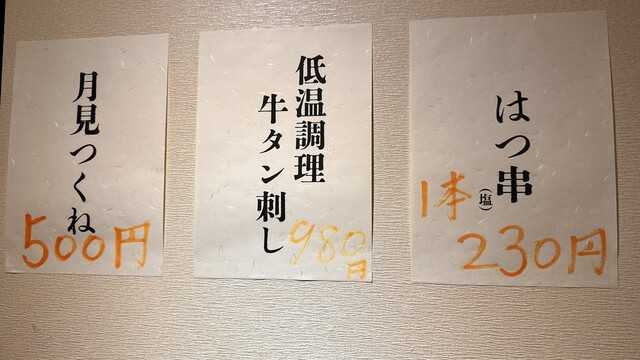 月見つくね
500円
低温調理
牛タン刺し
980円
はつ串(塩)
1本
230円